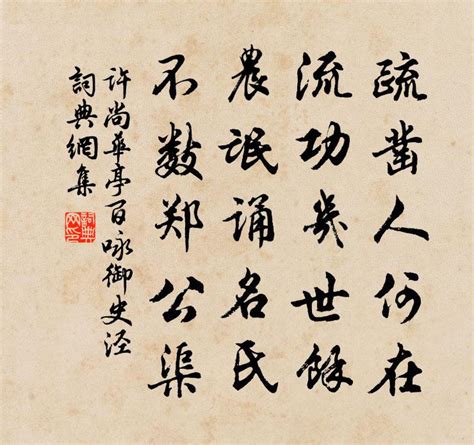 疏凿人何在
流功几世馀
農氓诵名氏
不数郑公渠
许尚華亭百咏御史泾
詞典網集